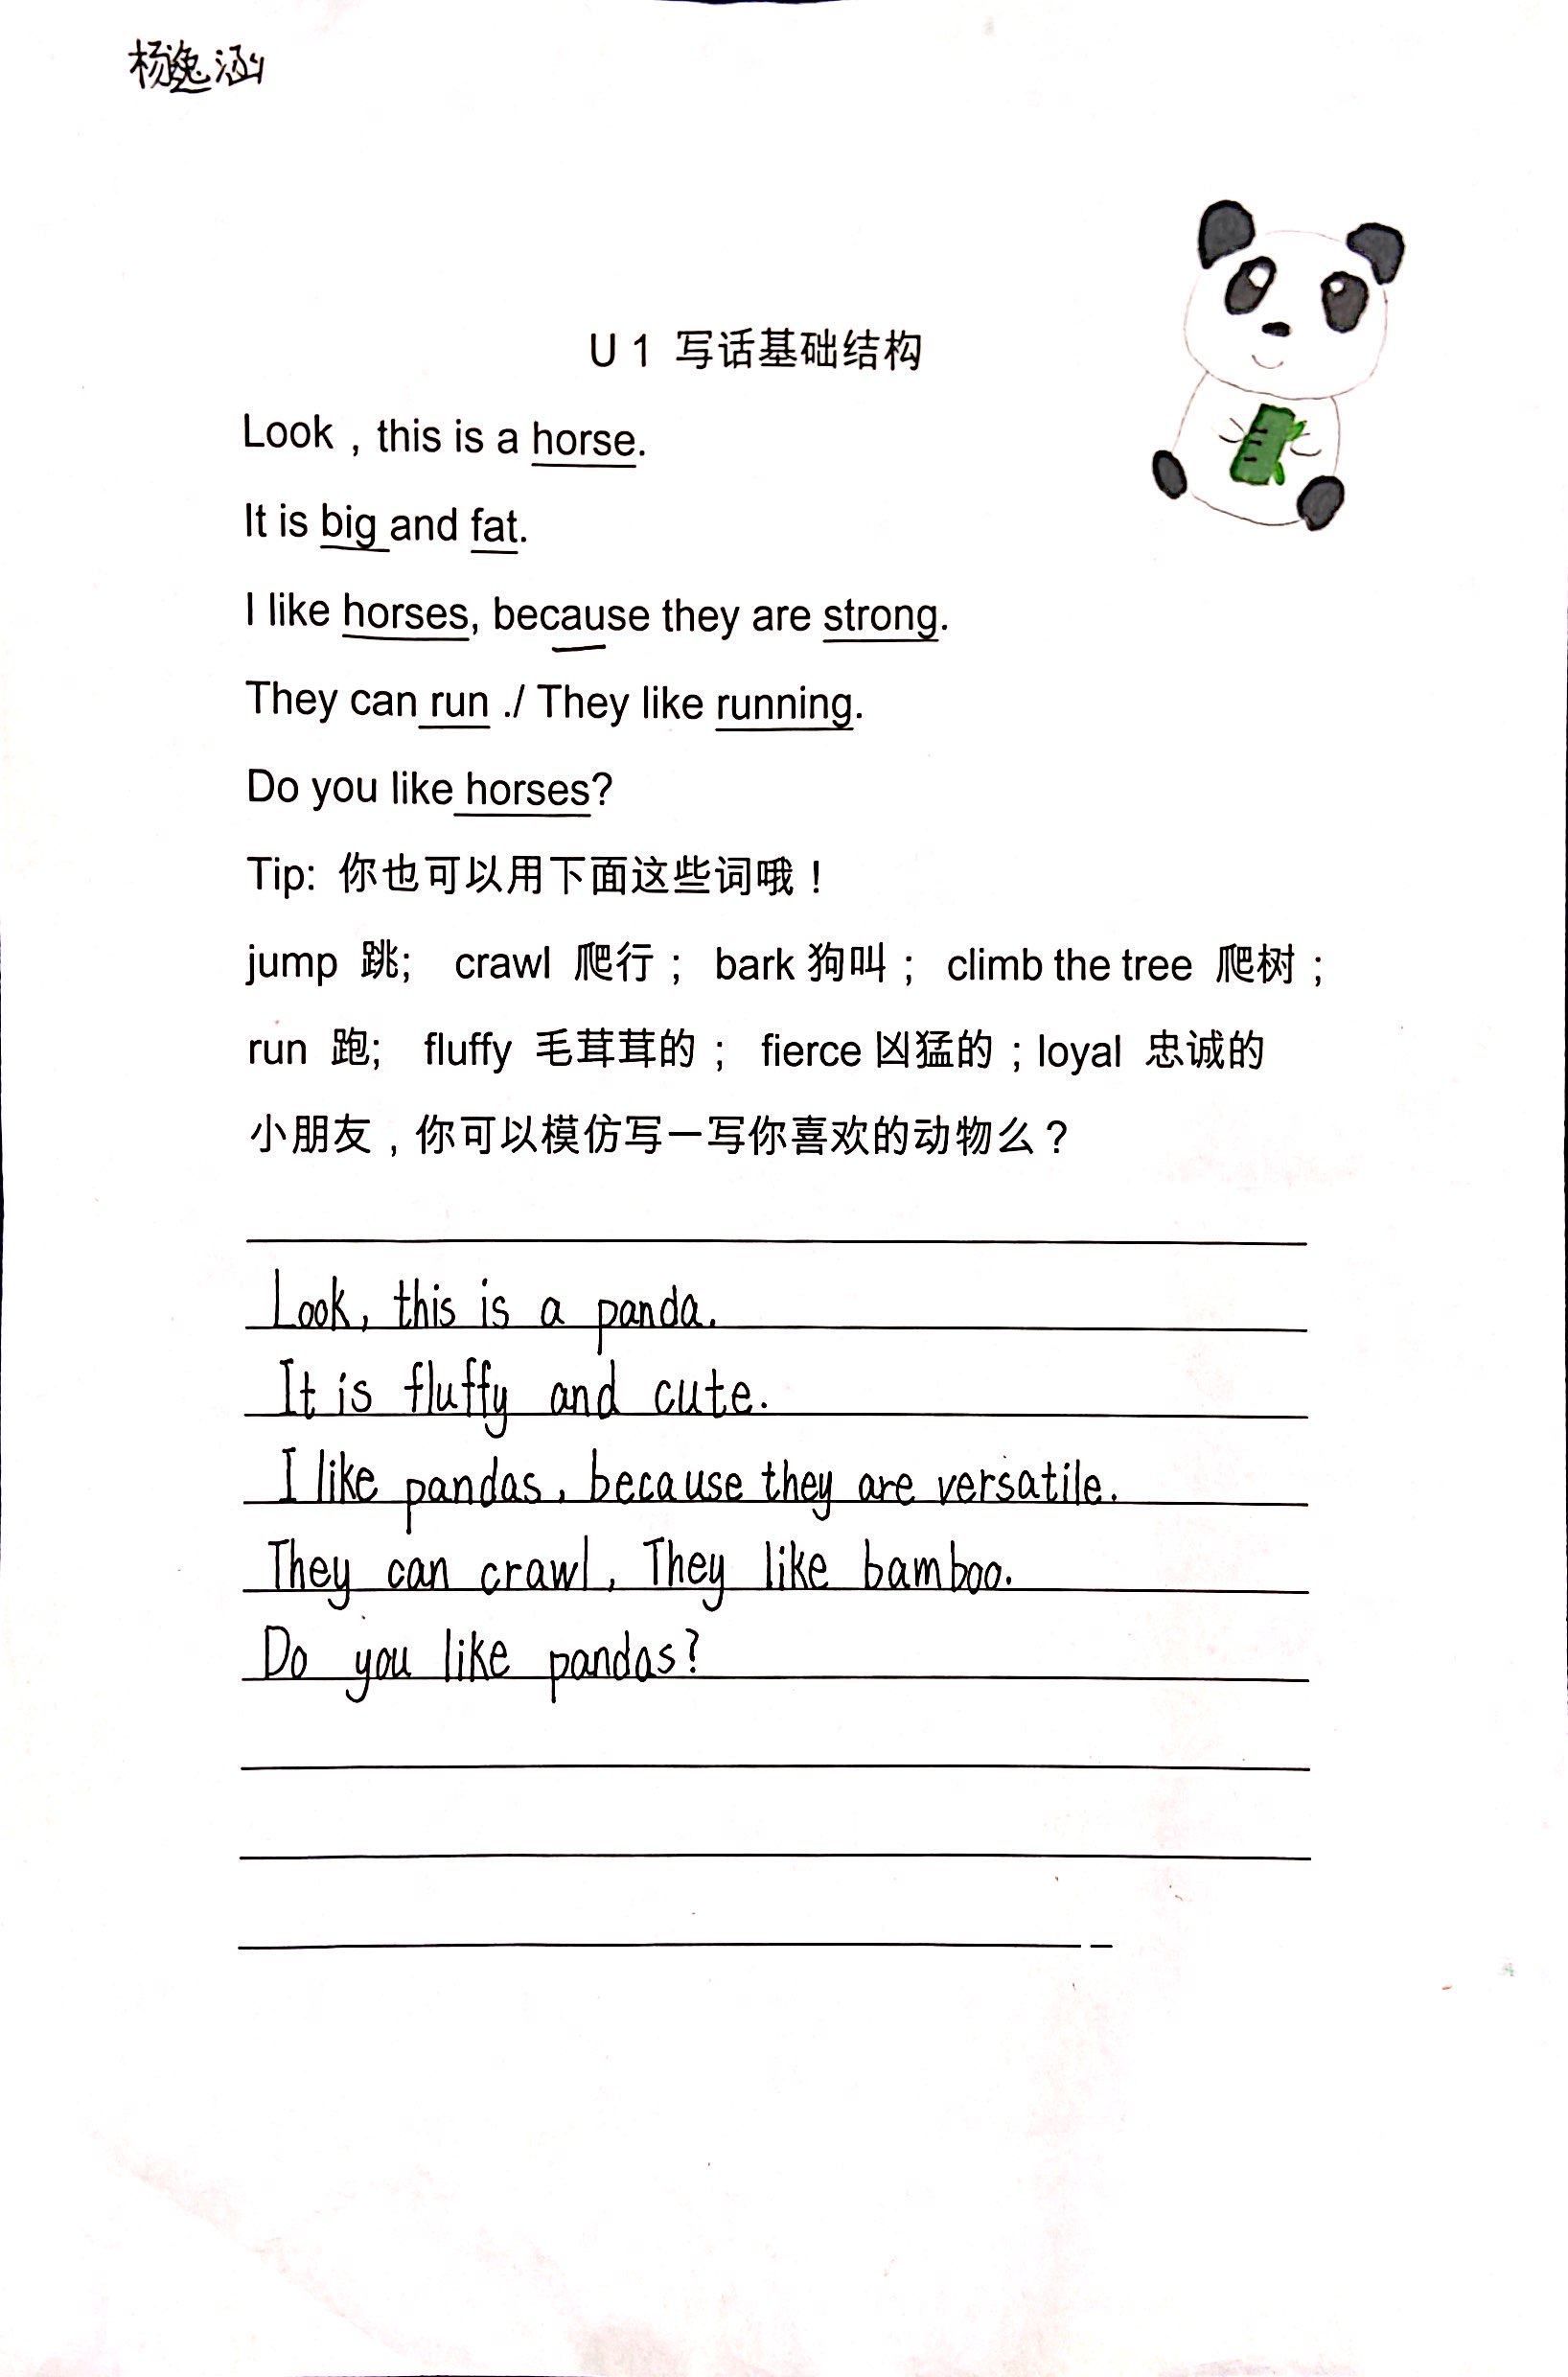 杨逸涵
U 1 写话基础结构
Look , this is a horse.
It is big and fat.
I like horses, because they are strong.
They can run ./ They like running.
Do you like horses?
Tip: 你也可以用下面这些词哦！
jump 跳; crawl 爬行； bark 狗叫； climb the tree 爬树；
run 跑; fluffy 毛茸茸的； fierce 凶猛的；loyal 忠诚的
小朋友，你可以模仿写一写你喜欢的动物么？
Look, this is a panda.
It is fluffy and cute.
I like pandas, because they are versatile.
They can crawl, They like bamboo.
Do you like pandas?